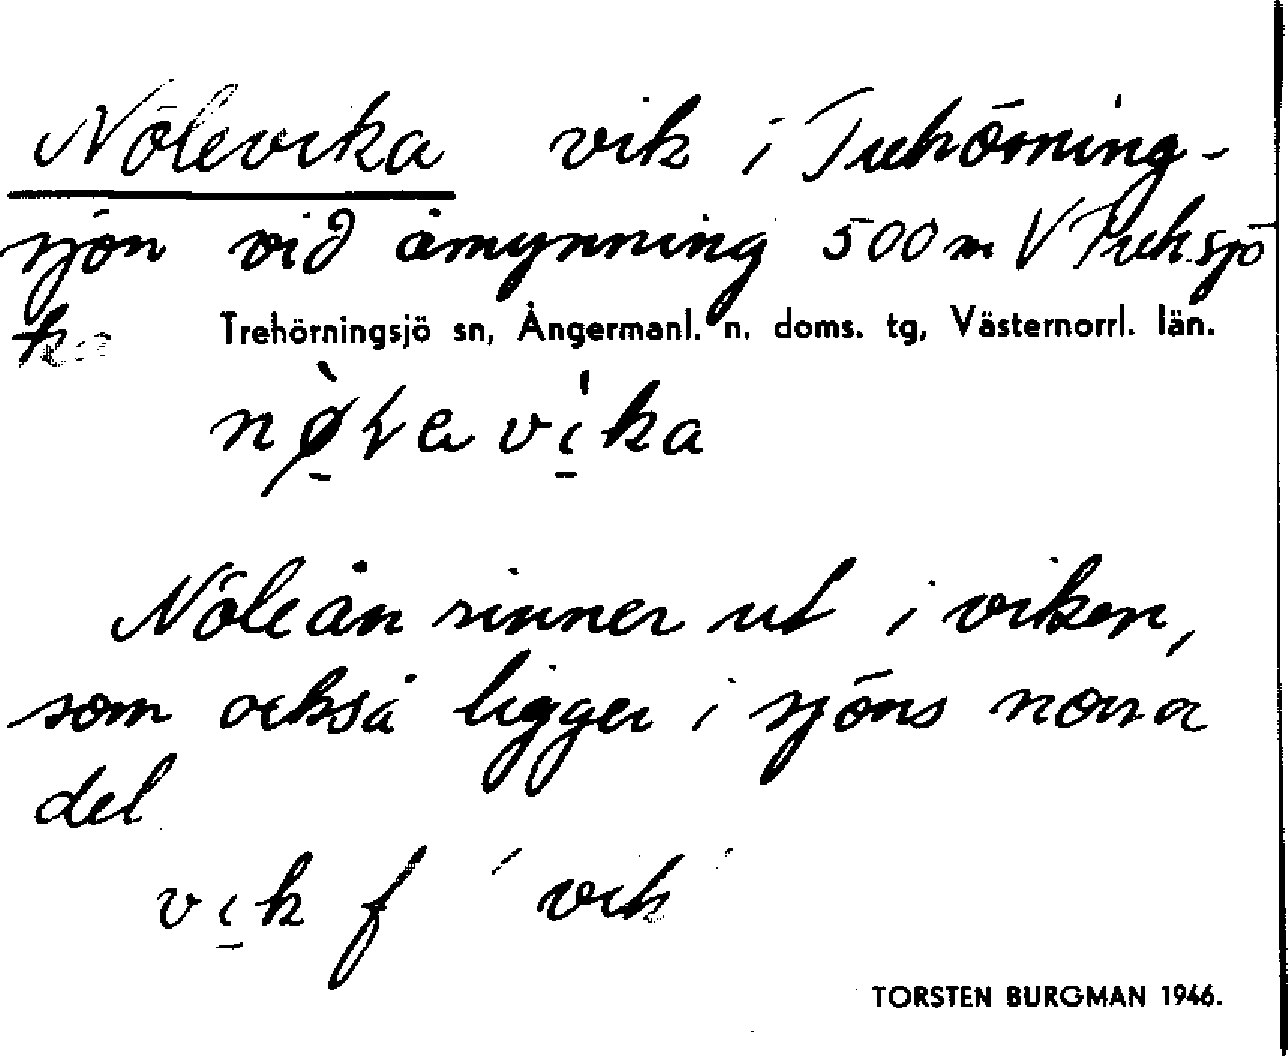 Nölevika vik i Trehörning-
sjön vid åmynning 500 m V Treh.sjö
k:a
Trehörningsjö sn, Ångermanl. n. doms. tg, Västernorrl. län.
Nöleån rinner ut i viken,
som också ligger i sjöns norra
del
vik f ' vik '
TORSTEN BURGMAN 1946.